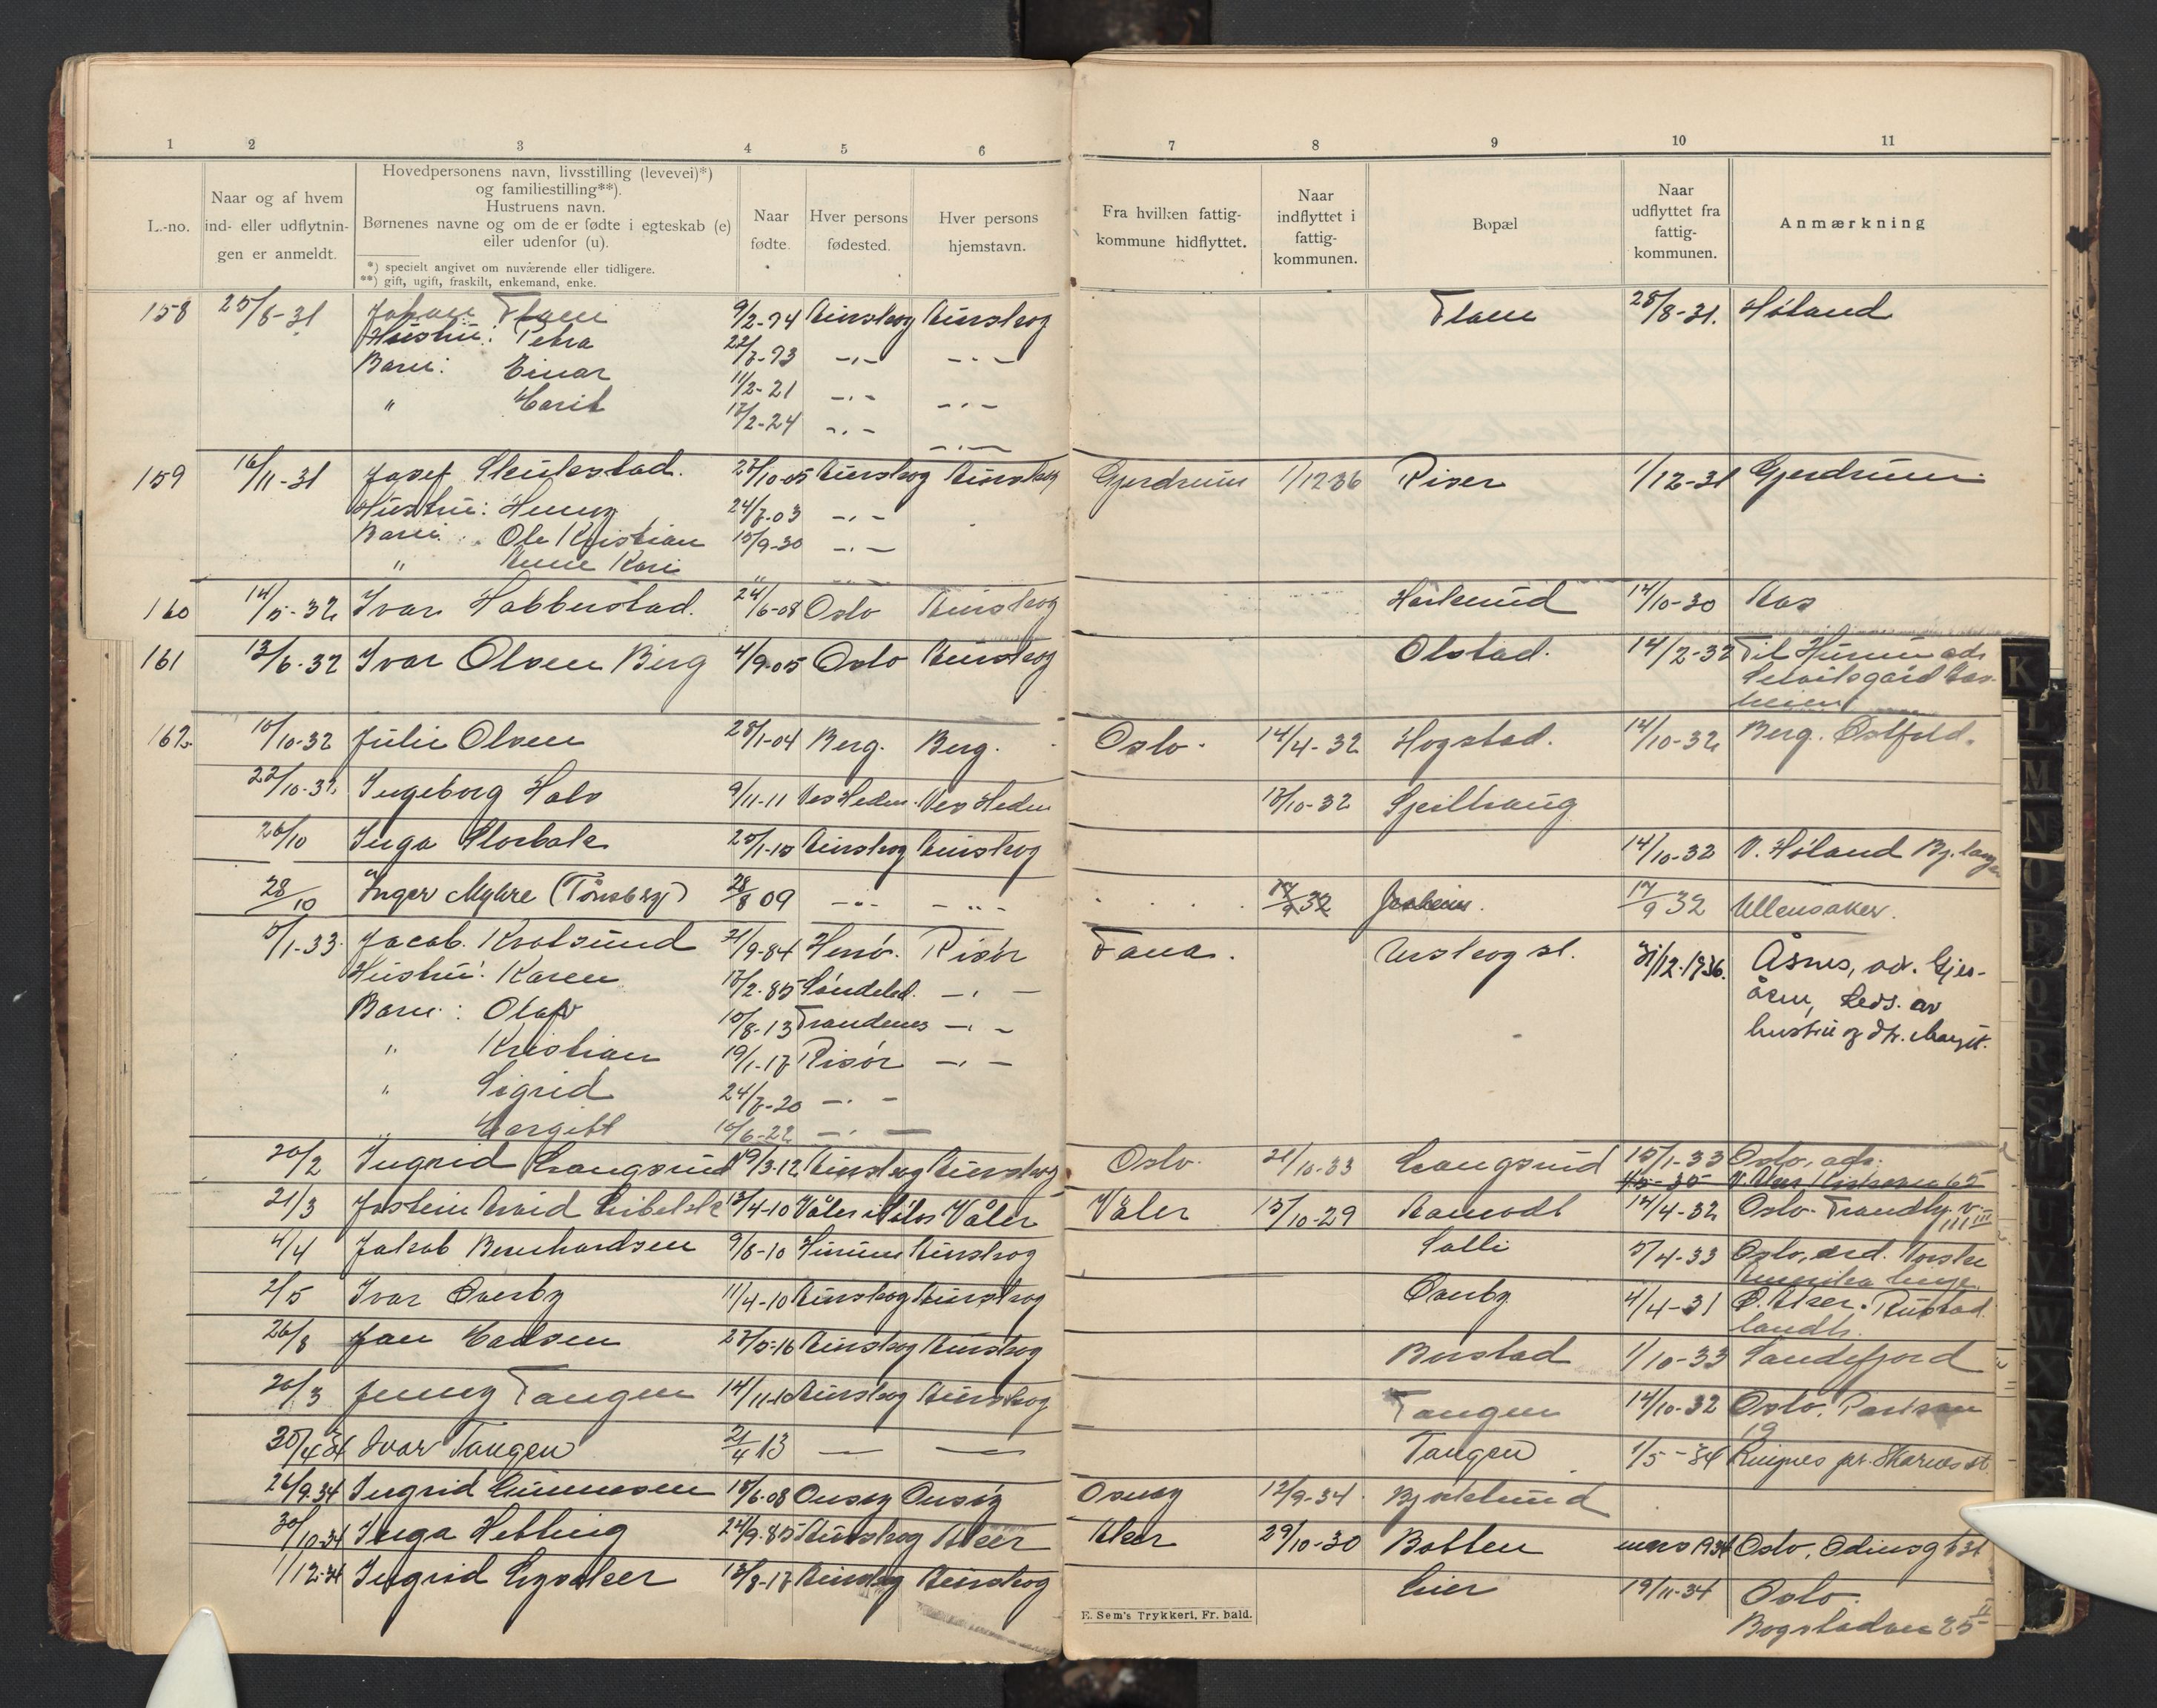 1 2 3 4 5 6 7 8 9 10 11
L.-no.
Naar og af hvem
ind- eller udflytnin-
gen er anmeldt.
Hovedpersonens navn, livsstilling (levevei)*)
og familiestilling**).
Hustruens navn.
Børnenes navne og om de er fødte i egteskab (e)
eller udenfor (u).
*) specielt angivet om nuværende eller tidligere.
**) gift, ugift, fraskilt, enkemand, enke.
Naar
fødte.
Hver persons
fødested.
Hver persons
hjemstavn.
Fra hvilken fattig-
kommune hidflyttet.
Naar
indflyttet i
fattig-
kommunen.
Bopæl
Naar
udflyttet fra
fattig-
kommunen.
Anmærkning
158 25/8-31 Johan Flaen 9/2-94 Aurskog Aurskog Flaen 28/8-31. Høland
Hustru: Petra 22/7-93 -"- -"-
Barn: Einar 11/2-21 -"- -"-
" Marit 17/2-24 -"- -"-
159 16/11-31 Josef Skulestad. 27/10-05 Aurskog Aurskog Gjerdrum 1/12 36 Riser 1/12-31 Gjerdrum.
Hustru: Henny 24/7-03 -"-
Barn: Ole Kristian 15/9-30 -"-
" Anne Kari "
160 14/5-32 Ivar Habberstad. 24/6-08 Oslo Aurskog 14/10-30 Aas
161 13/6-32 Ivar Olsen Berg 4/9-05 Oslo Aurskog Olstad. 14/2-32 Til Hurum
162. 10/10-32 Julie Olsen 28/1-04 Berg. Berg. Oslo. 14/4-32 Hogstad. 14/10-32 Berg. Østfold.
22/10-32 Ingeborg Halv 9/11-11 Ves Heden. Ves Heden 17/10-32
20/10 Inga Storbak 25/1-10 Aurskog Aurskog 14/10-32 V. Høland
28/10 Inger Myhre (Tønsberg) 28/8 09 -"- -"- 17/9 32 17/9 32 Ullensaker.
5/1-33. Jacob Kvolsund 21/9-84 Risør Fana. Aurskog st. 31/12-1936. Åsnes, adr. Gjes-
Hustru: Karen 17/2-85 Søndeled. -"- åsen, Leds. av
Barn: Olaf 15/8-13 Trondenes -"- hustru og dtr. Margit.
" Kristian 19/1-17 Risør -"-
" Sigrid 24/7-20 -"-
" Margitt 10/6-22 -"-
20/2 Ingrid Langsrud 19/3-12 Aurskog Aurskog Oslo. 21/10-33 Langsrud 15/1-33 Oslo, adr.
21/3 Jostein Arvid 13/4-10 Våler i Solør Våler Våler 15/10-29 Aamodt 14/4-32 Oslo.
4/4 Jakob Bernhardsen 9/8-10 Hurum Aurskog Lalli 5/4-33 Oslo, adr. Norske
Amerika linje
2/5 Ivar Overby 11/4-10 Aurskog Aurskog Overby 4/4-31 Ø. Aker. Rustad
landh.
26/8 Jan Madsen 27/5-16 Aurskog Aurskog Burstad 1/10-33 Sandefjord
20/3 Jenny Tangen 14/11-10 Aurskog Aurskog Tangen 14/10-32 Oslo.
19
30/4 34 Ivar Tangen 21/4 13 — — Tangen 1/5-34 Ringnes pr. Skarnes st.
26/9-34 Ingrid Gunnesen 18/6-08 Onsøy Onsøy Onsøy 12/9-34. Bjørklund
30/10-34 Inga Helling 24/9-85 Aurskog Aker Aker 29/10-30 Botten mars 1934 Oslo, Odinsg
1/12-34 Ingrid Lysaker 13/8-17 Aurskog Aurskog Lier 19/11-34 Oslo.
Bogstadvn 25 II
E. Sem's Trykkeri, Fr. hald.
K
L
M
N
O
P
Q
R
S
T
U
V
W
X
Y